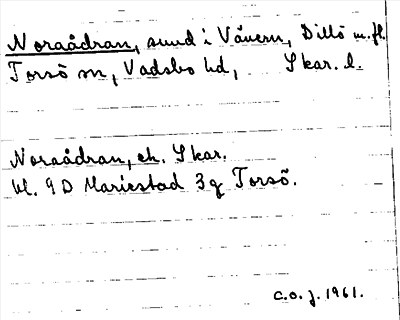 Noraådran, sund i Vänern, Dillö m.fl.
Torsö sn, Vadsbo hd, Skar. l.
Noraådran, ek. Skar.
bl. 9D Mariestad 3g Torsö.
c.o.j. 1961.